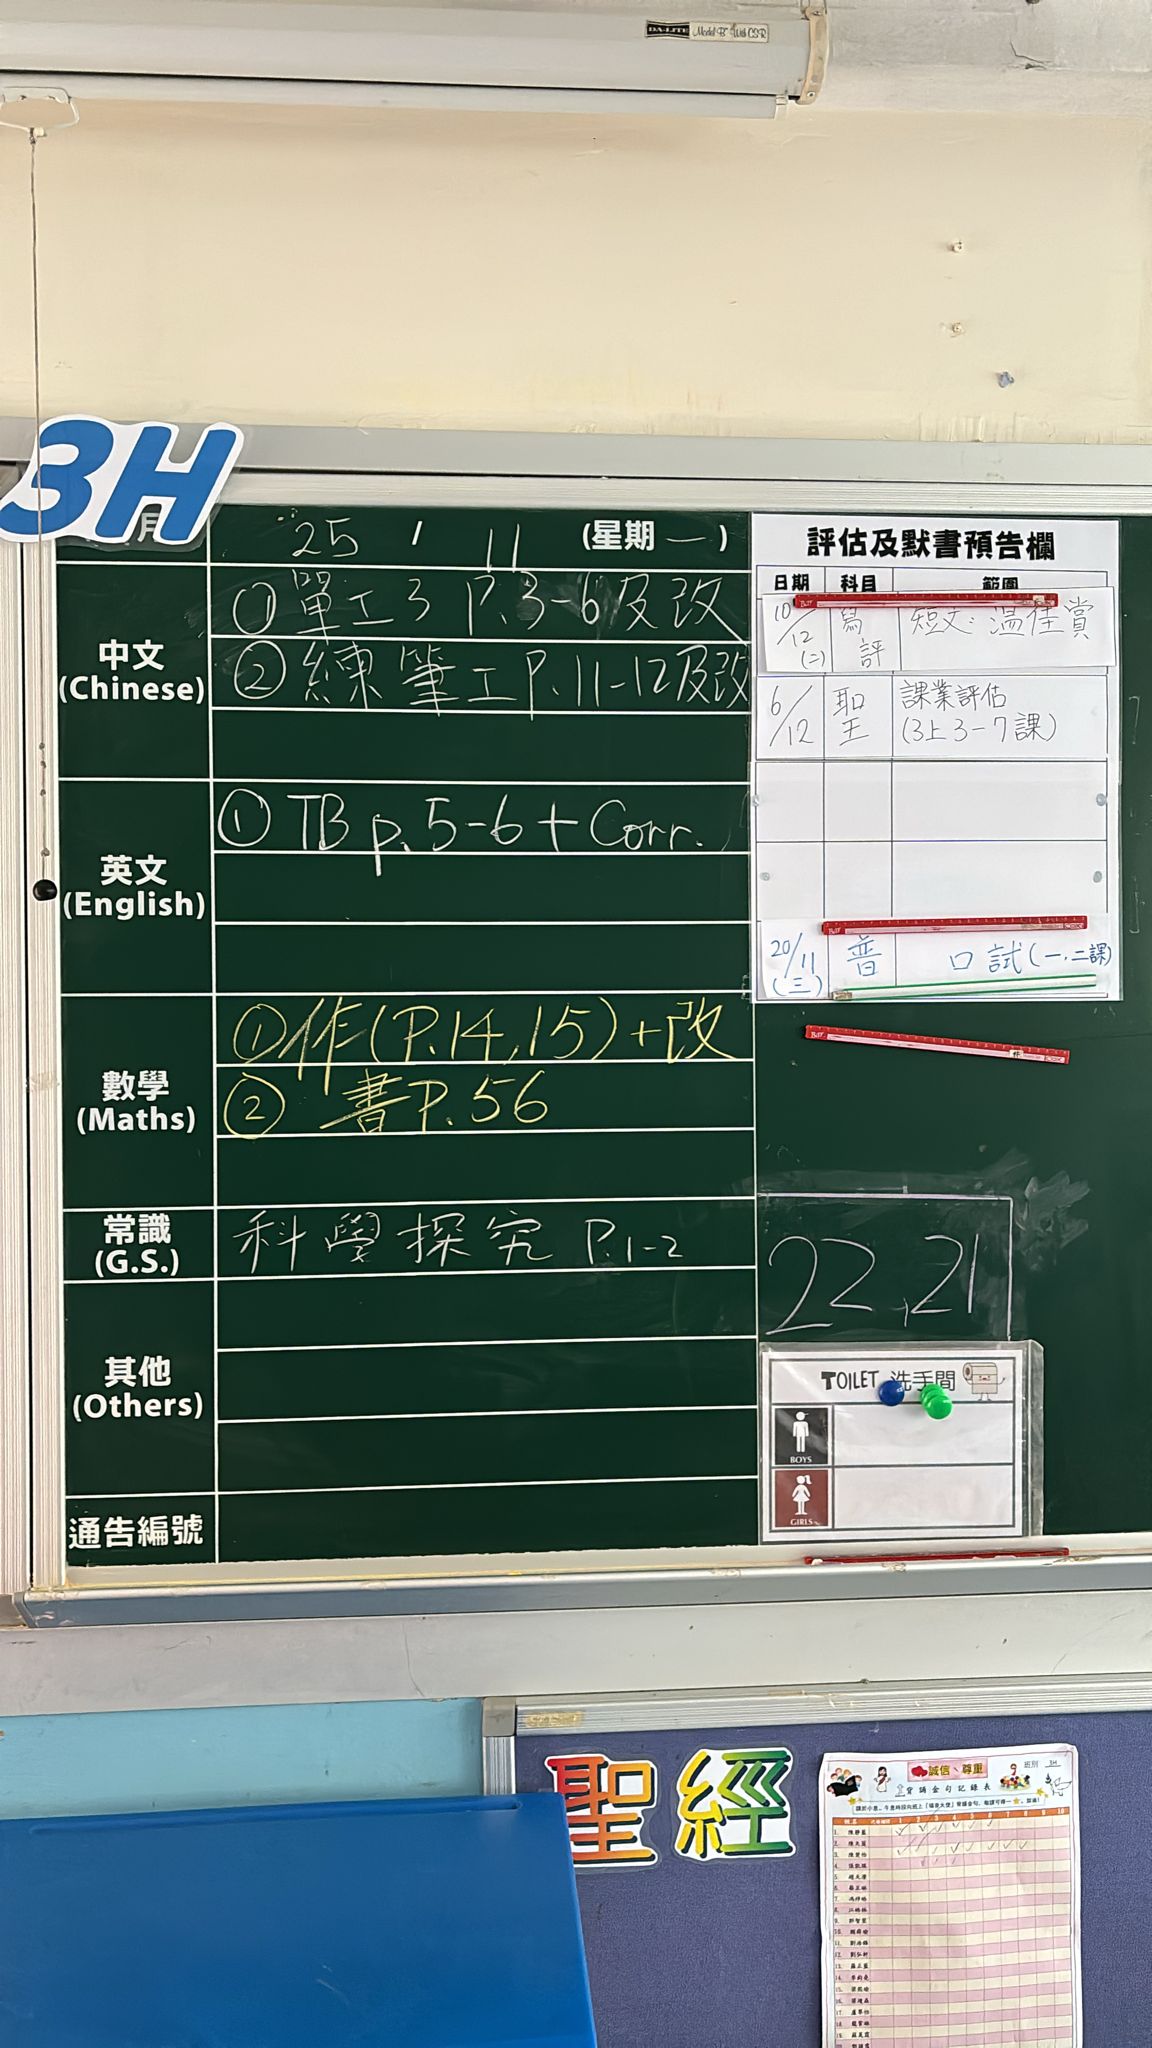 DA-LITE Model B With CSR
3H
月 25 / 11 (星期一)
中文
(Chinese)
①單工3 P.3-6及改
②練筆工P.11-12及改
英文
(English)
①TB p.5-6 + Corr.
數學
(Maths)
①作(P.14,15)+改
② 書P.56
常識
(G.S.)
科學探究 P.1-2
其他
(Others)
通告編號
評估及默書預告欄
日期 科目 範圍
10/12 (二) 寫評 短文:溫佳賞
6/12 聖 課業評估
(3上3-7課)
20/11 (三) 普 口試(一,二課)
22,21
TOILET 洗手間
BOYS
GIRLS
聖經
誠信、尊重
班別 3H
背誦金句記錄表
1 2 3 4 5 6 7 8 9 10